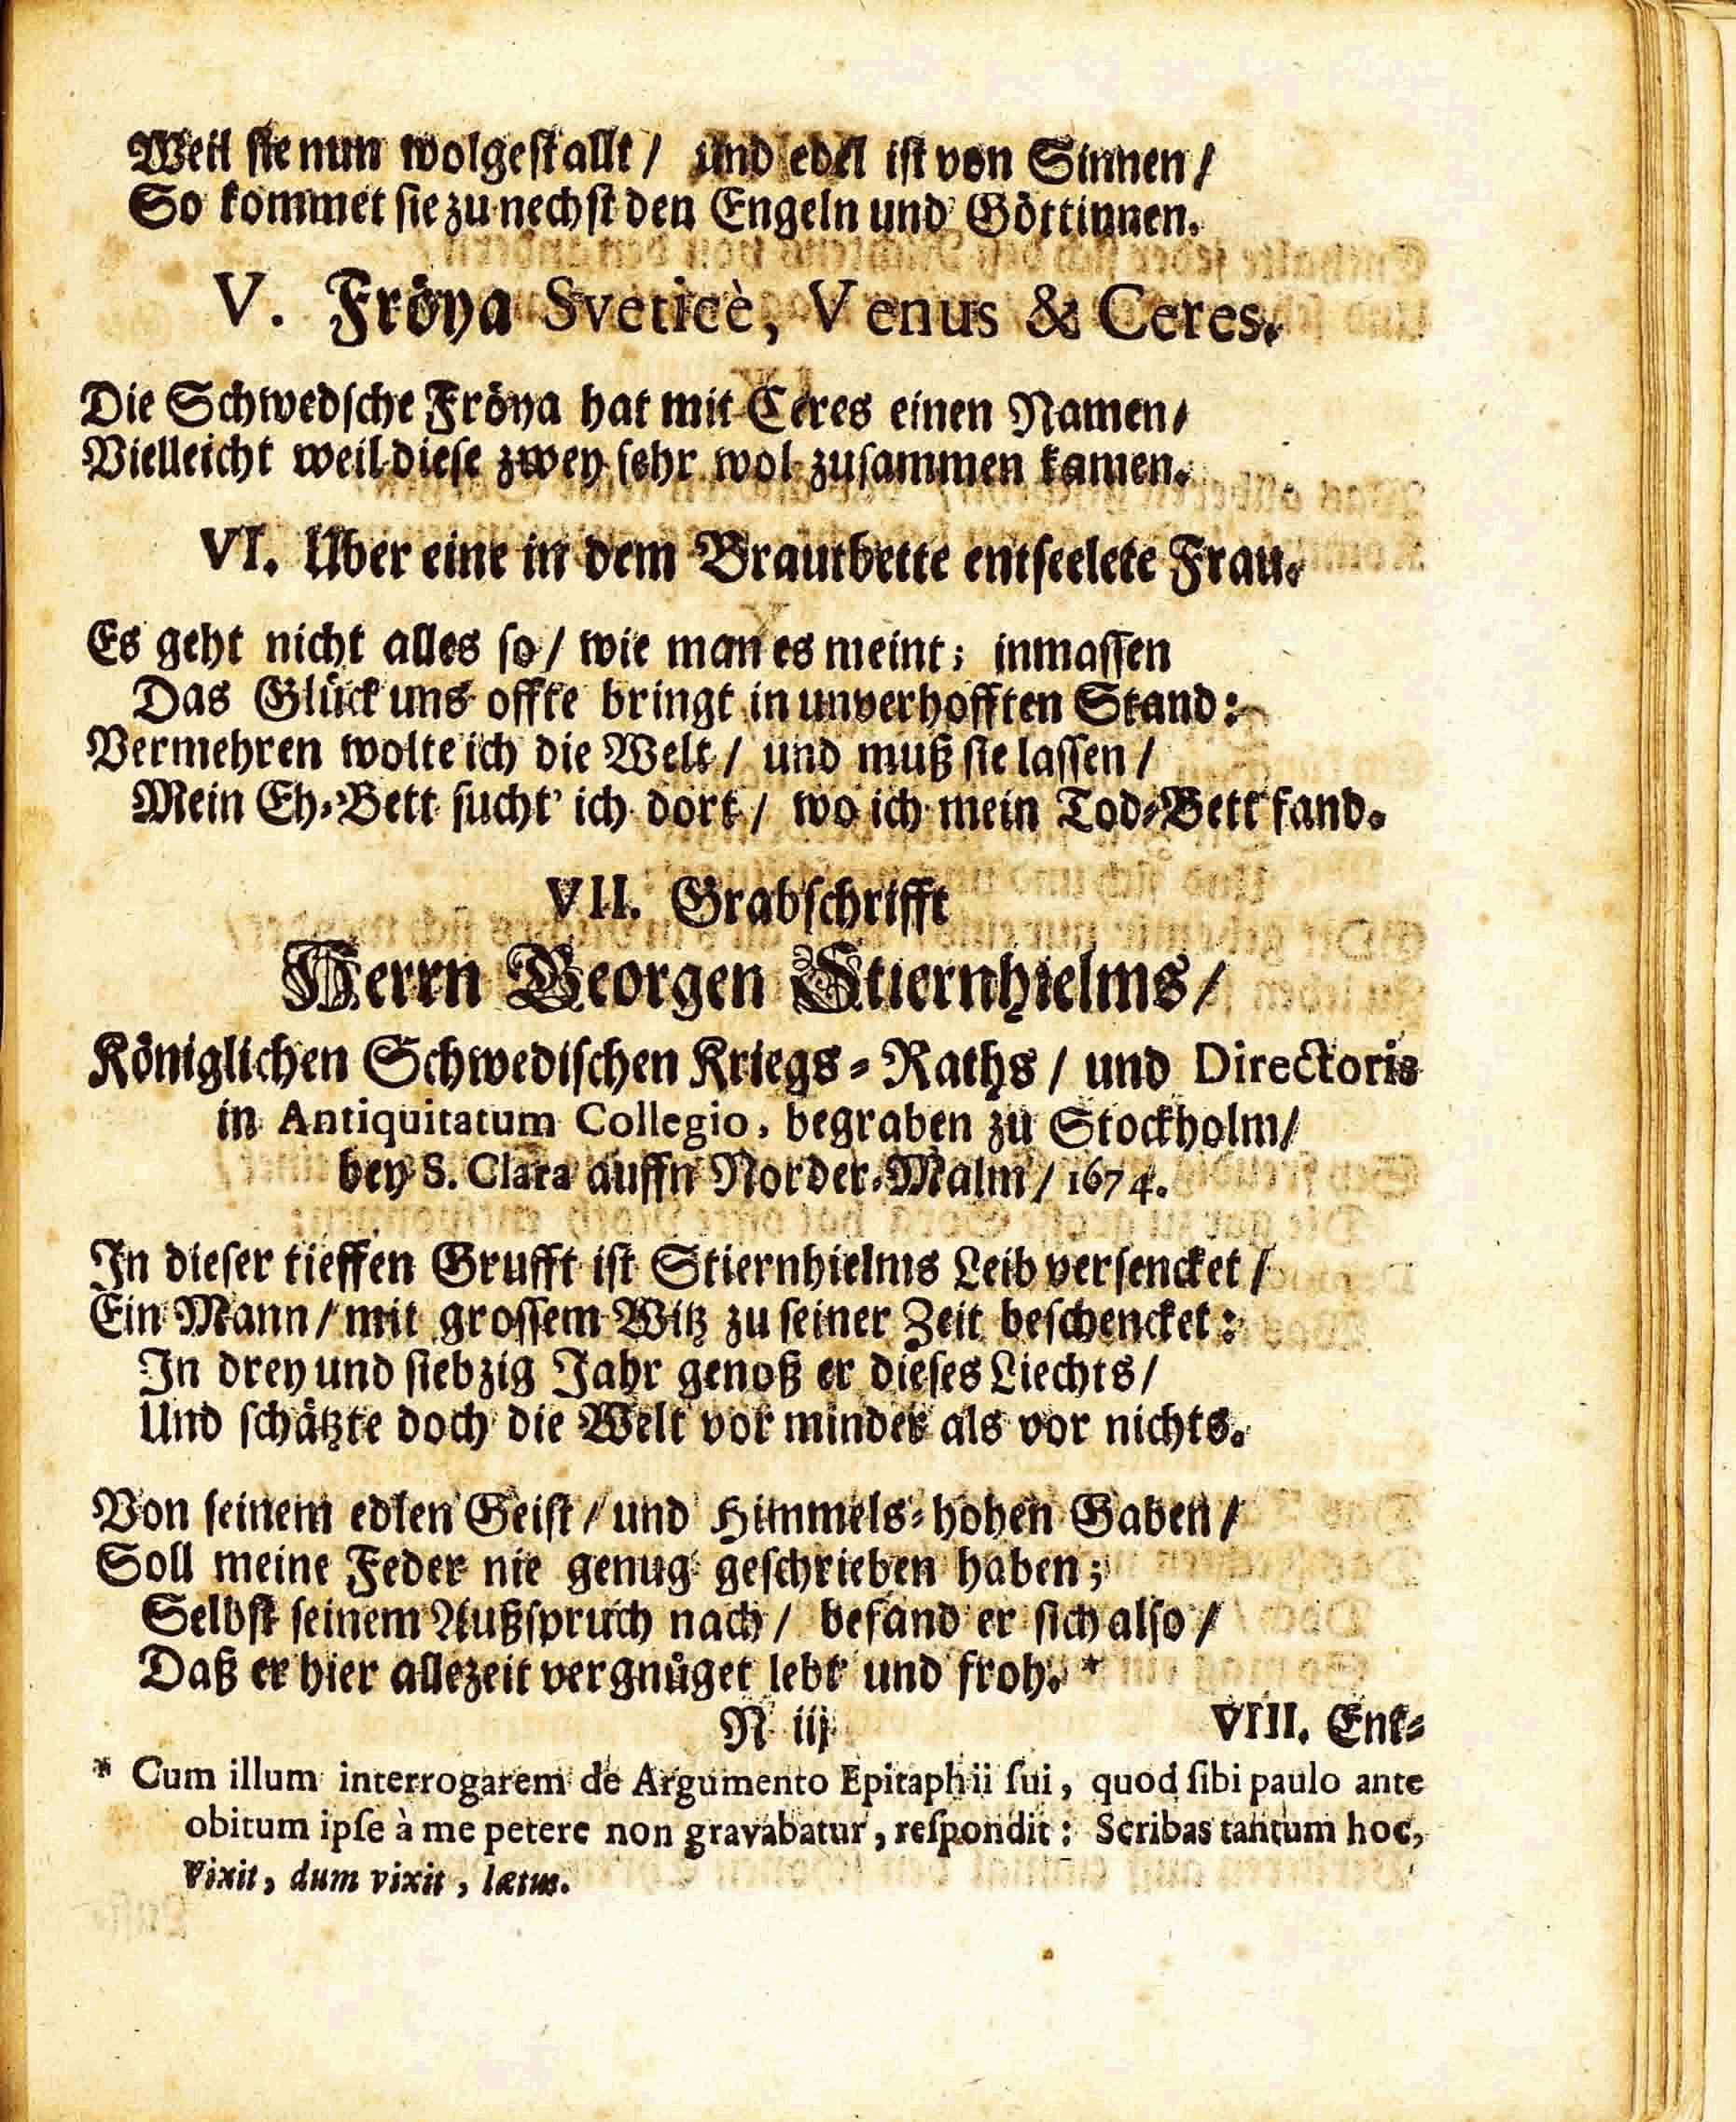 Weil sie nun wolgestallt / und edel ist von Sinnen /
So kommet sie zu nechst den Engeln und Göttinnen.
V. Fröya Sveticè, Venus & Ceres.
Die Schwedsche Fröya hat mit Ceres einen Namen /
Vielleicht weil diese zwey sehr wol zusammen kamen.
VI. Uber eine in dem Brautbette entseelete Frau.
Es geht nicht alles so / wie man es meint; inmassen
Das Glück uns offte bringt in unverhofften Stand:
Vermehren wolte ich die Welt / und muß sie lassen /
Mein Eh-Bett sucht' ich dort / wo ich mein Tod-Bett fand.
VII. Grabschrifft
Herrn Georgen Stiernhielms /
Königlichen Schwedischen Kriegs-Raths / und Directoris
in Antiquitatum Collegio, begraben zu Stockholm /
bey S. Clara auffn Norder-Malm / 1674.
In dieser tieffen Grufft ist Stiernhielms Leib versencket /
Ein Mann / mit grossem Witz zu seiner Zeit beschencket:
In drey und siebzig Jahr genoß er dieses Liechts /
Und schätzte doch die Welt vor minder als vor nichts.
Von seinem edlen Geist / und Himmels-hohen Gaben /
Soll meine Feder nie genug geschrieben haben;
Selbst seinem Außspruch nach / befand er sich also /
Daß er hier allezeit vergnüget lebt und froh. *
N iij
VIII. Ent-
* Cum illum interrogarem de Argumento Epitaphii sui, quod sibi paulo ante
obitum ipse à me petere non gravabatur, respondit: Scribas tantum hoc,
Vixit, dum vixit, lætus.